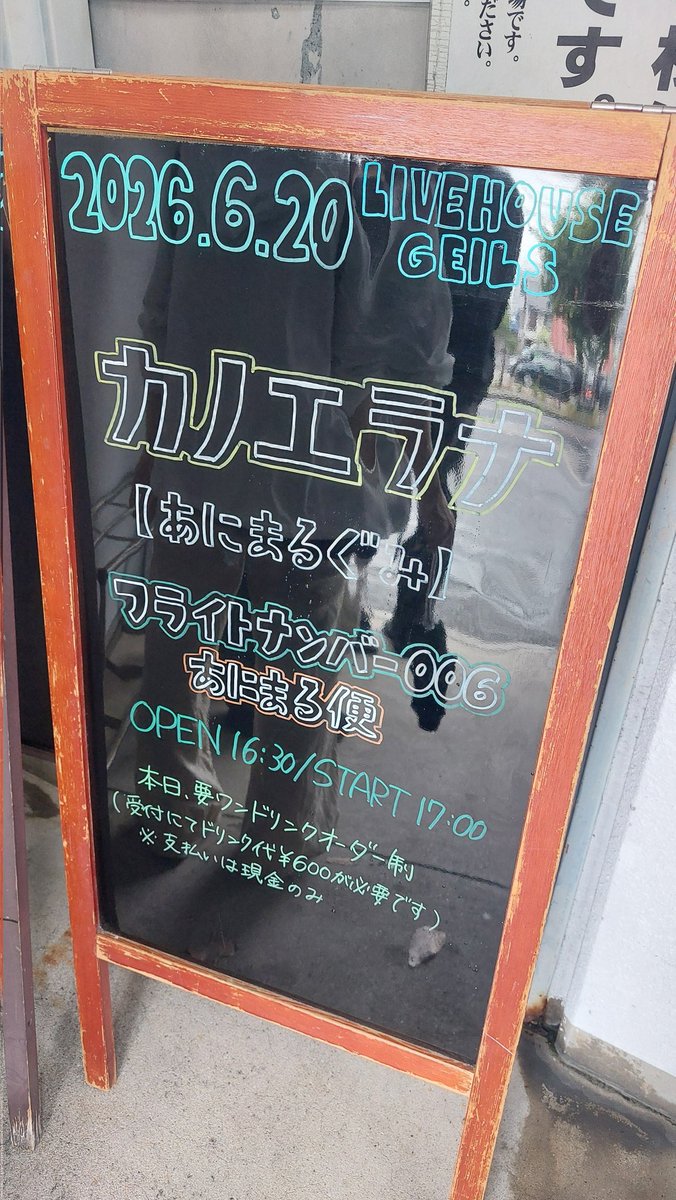 2026.6.20
LIVEHOUSE
GEILS
カノエラナ
【あにまるぐみ】
フライトナンバー006
あにまる便
OPEN 16:30/START 17:00
本日、要ワンドリンクオーダー制
(受付にてドリンク代¥600が必要です)
※支払いは現金のみ
です。
場です。
ださい。